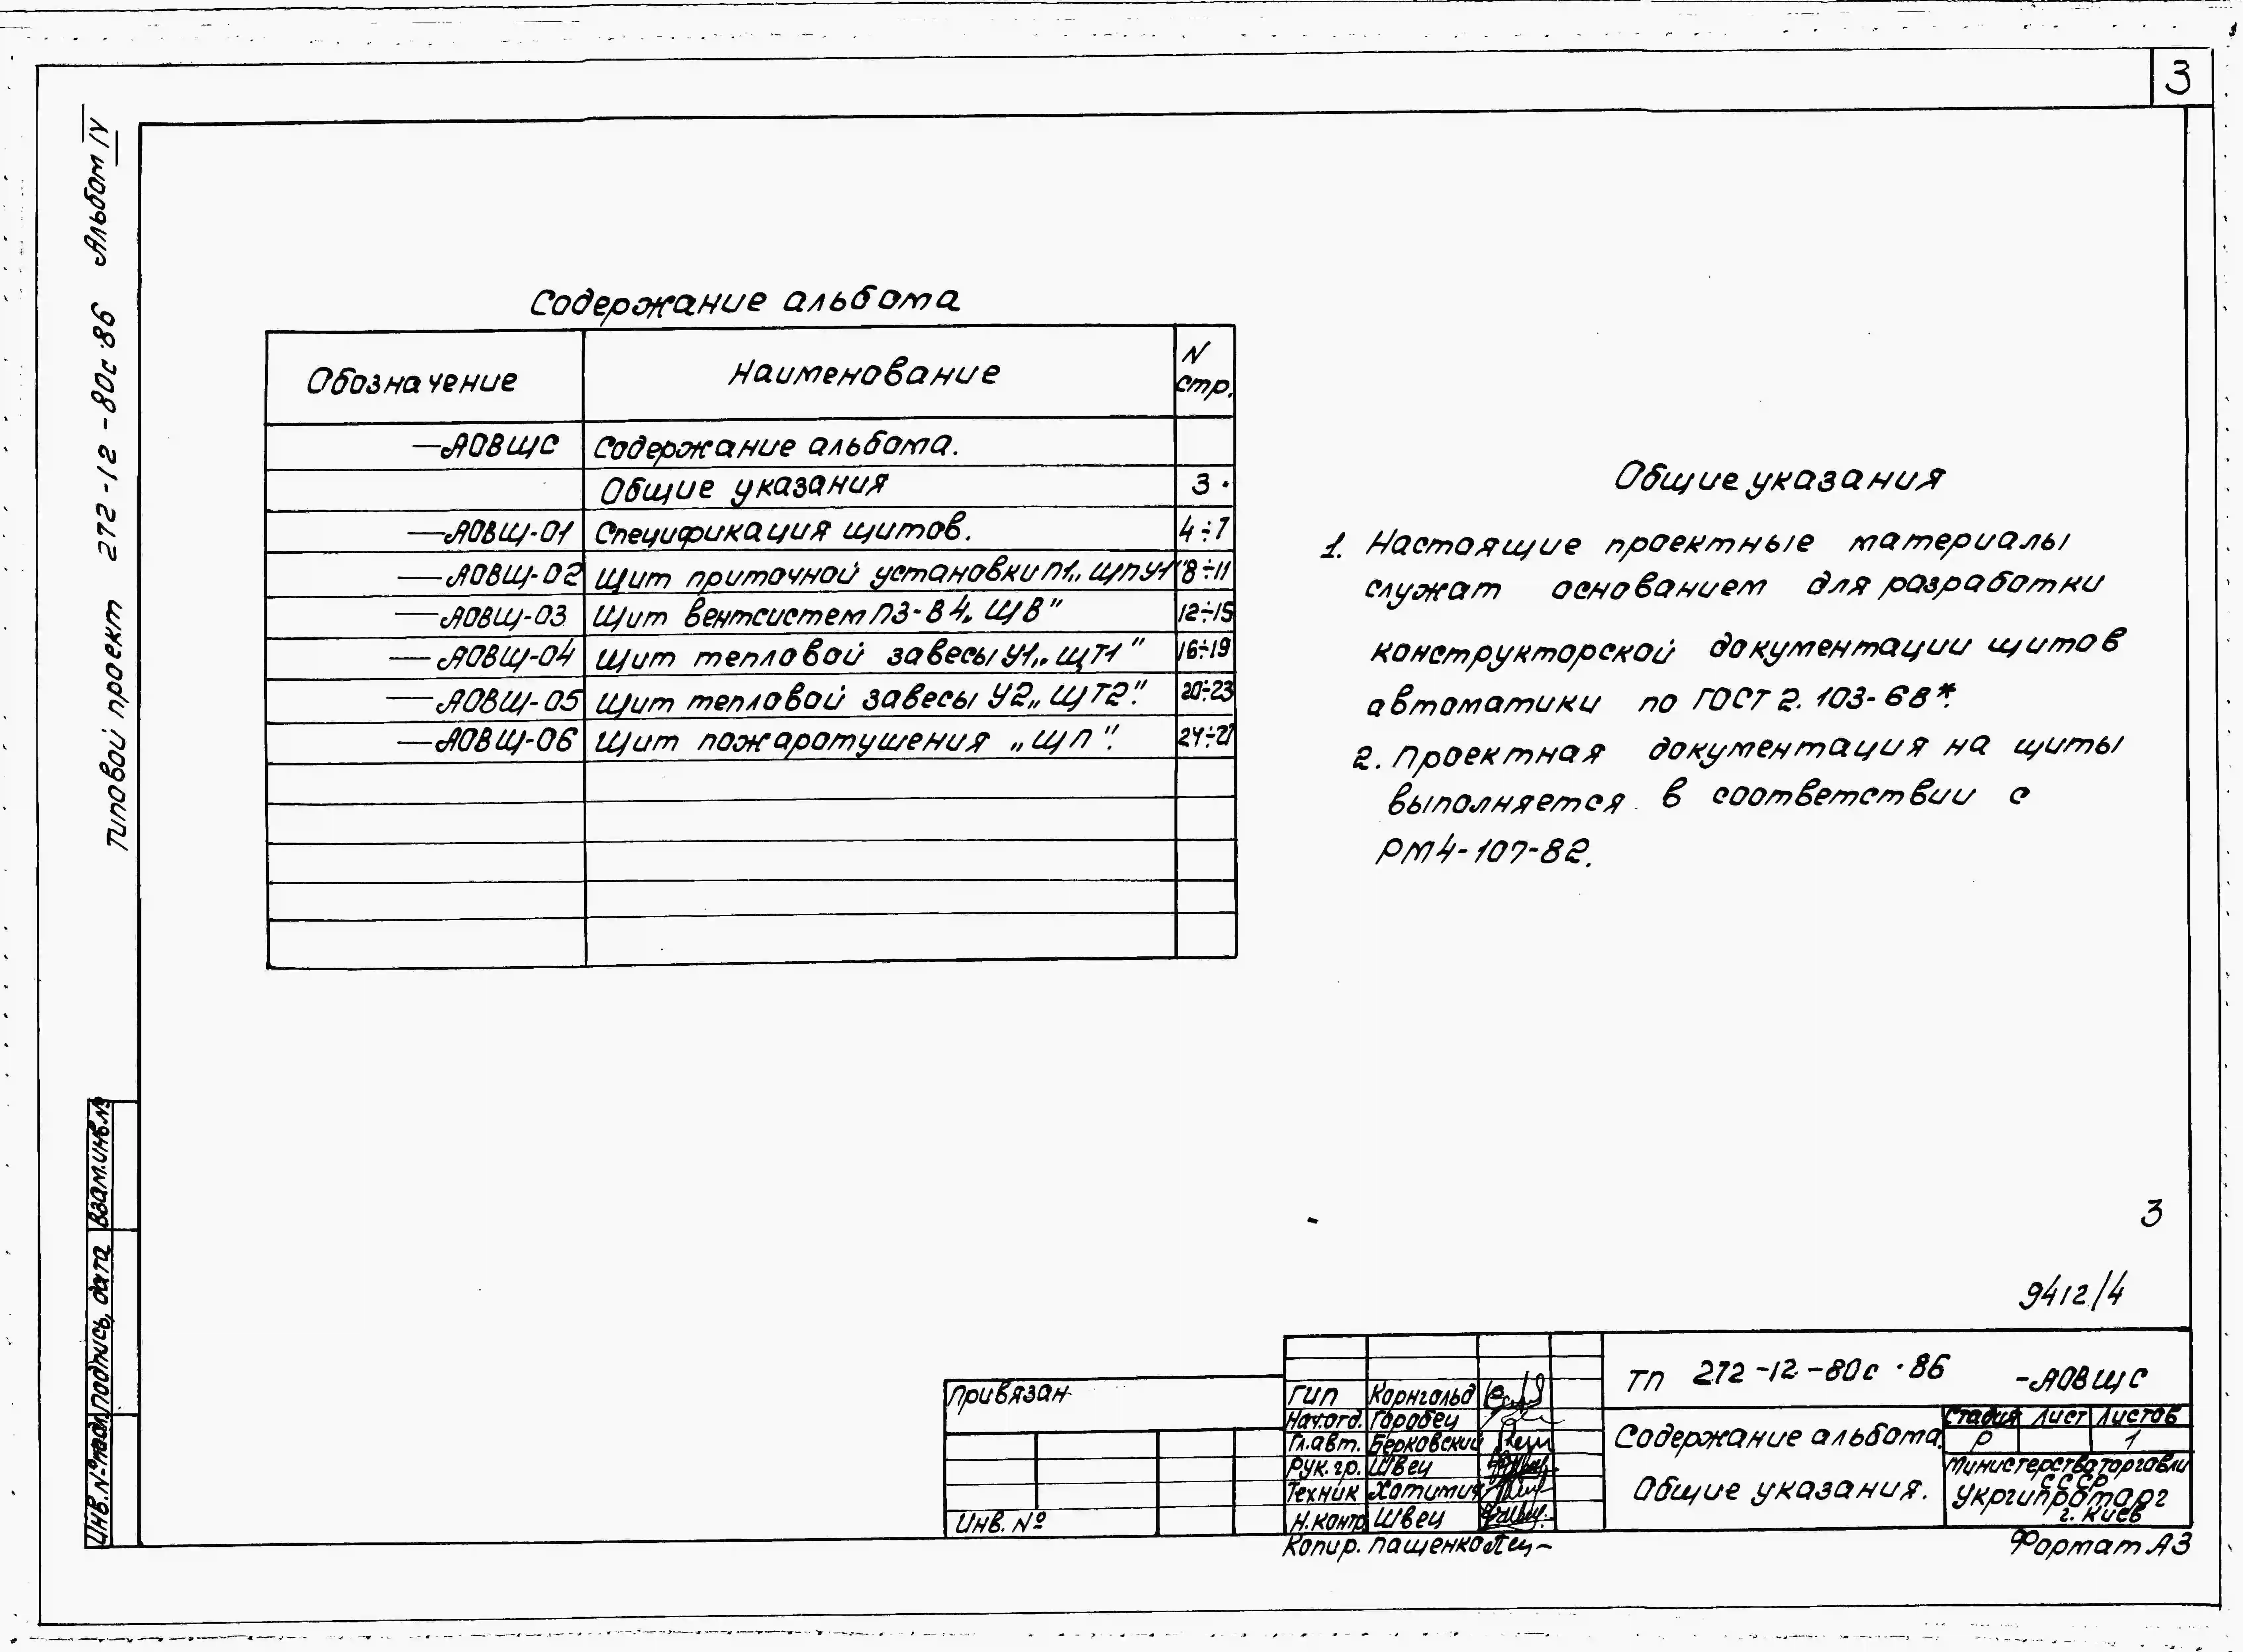 3
Типовой проект 272-12-80с.86 Альбом IV
Содержание альбома
Обозначение Наименование N стр.
—АОВЩС Содержание альбома.
Общие указания 3
—АОВЩ-01 Спецификация щитов. 4÷7
—АОВЩ-02 Щит приточной установки П1„ЩПУ1" 8÷11
—АОВЩ-03 Щит вентсистем П3-В4„ЩВ" 12÷15
—АОВЩ-04 Щит тепловой завесы У1„ЩТ1" 16÷19
—АОВЩ-05 Щит тепловой завесы У2„ЩТ2". 20÷23
—АОВЩ-06 Щит пожаротушения „ЩП". 24÷27
Общие указания
1. Настоящие проектные материалы
служат основанием для разработки
конструкторской документации щитов
автоматики по ГОСТ 2.103-68*.
2. Проектная документация на щиты
выполняется в соответствии с
РМ4-107-82.
Взам.инв.№
Подпись, дата
Инв.№подл.
3
9412/4
Привязан
Инв. №
ГИП Корнгольд
Нач.отд. Горобец
Гл.авт. Берковский
Рук.гр. Швец
Техник
Н.контр Швец
ТП 272-12-80с.86 -АОВЩС
Содержание альбома.
Общие указания.
Стадия Лист Листов
Р 1
Министерство торговли
СССР
Укргипроторг
г. Киев
Копир. Пащенко
Формат А3